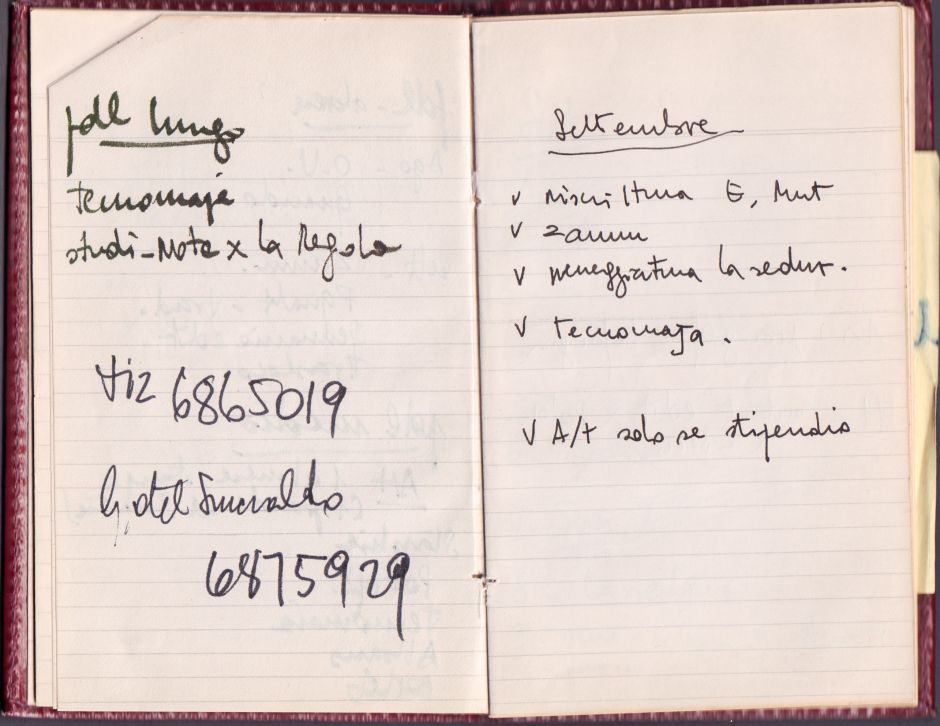 pdl lungo
tecnomaja
studi-Note x la Regola
tiz 6865019
hotel Smeraldo
6875929
Settembre
v riscrittura E, Mut
v zamm
v peneggiatura la sedur.
v tecnomaja.
v A/t solo se stipendio